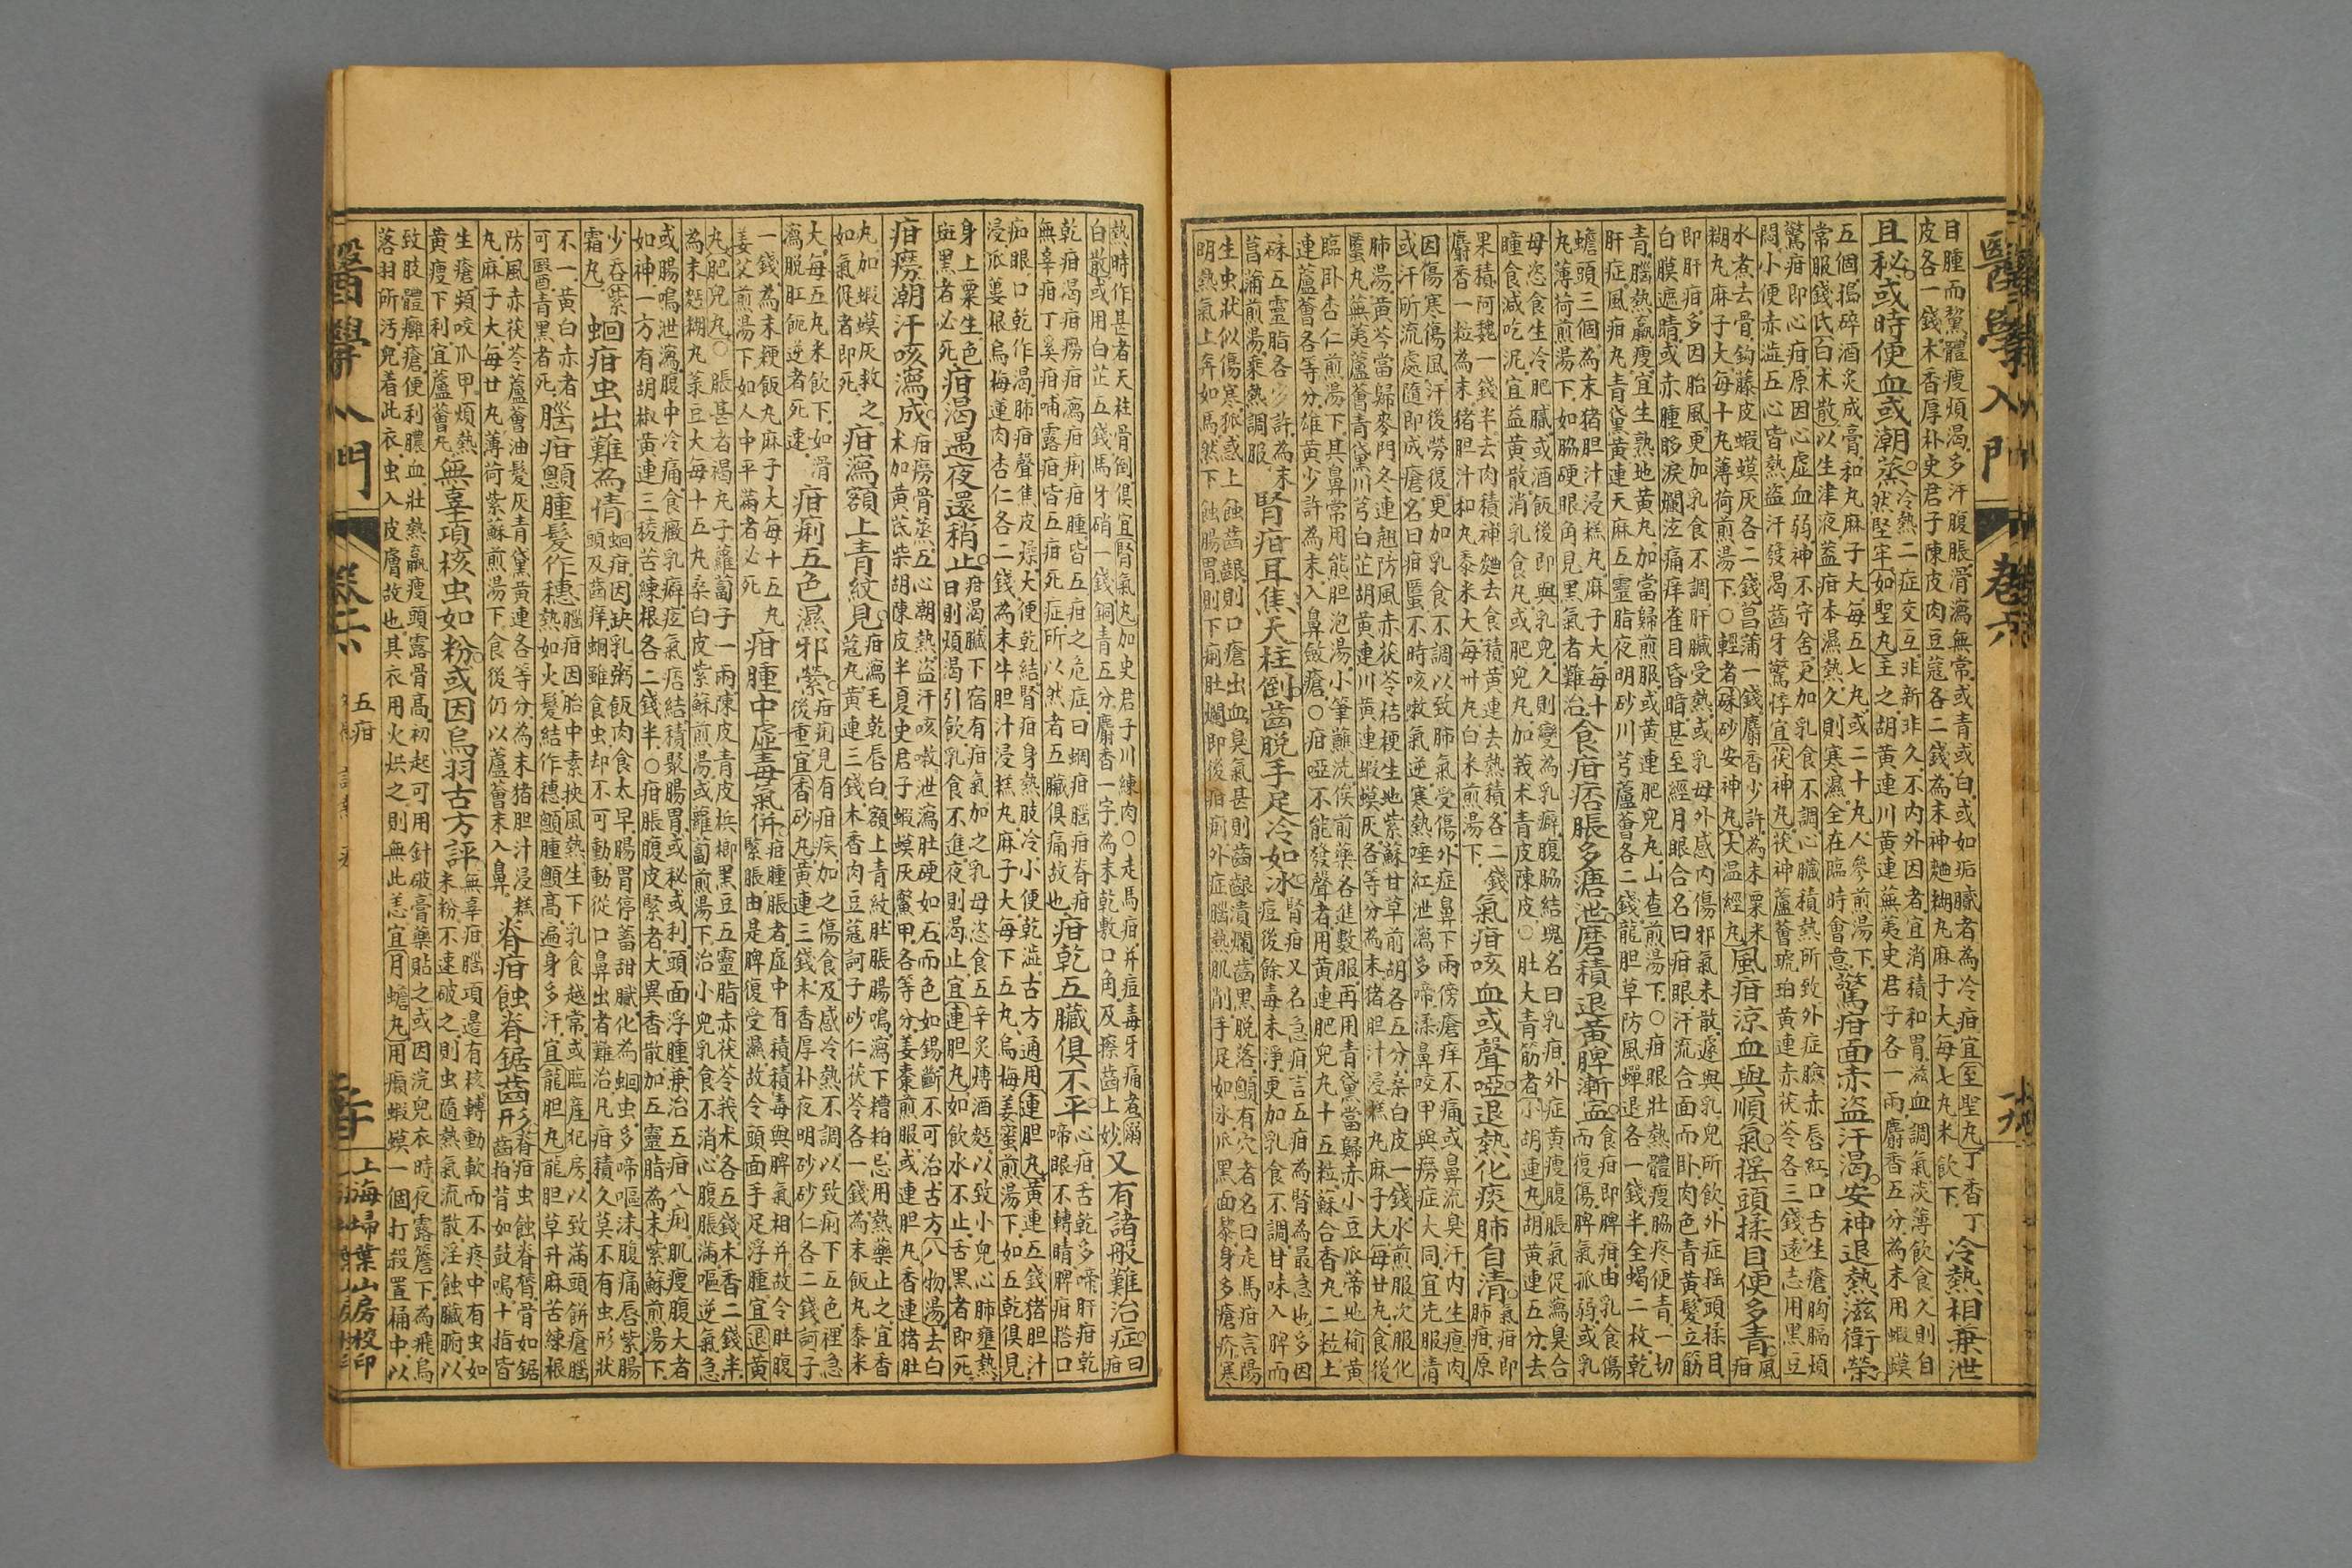 醫學入門 卷六
目腫而黧體瘦煩渴多汗腹脹滑瀉無常或青或白或如垢膩者為冷疳宜至聖丸丁香丁
皮各一錢木香厚朴史君子陳皮肉豆蔻各二錢為末神麯糊丸麻子大每七丸米飲下
冷熱相兼泄
且秘或時便血或潮蒸
冷熱二症交互非新非久不內外因者宜消積和胃滋血調氣淡薄飲食久則自
然堅牢如聖丸主之胡黃連川黃連蕪荑史君子各一兩麝香五分為末用蝦蟆
五個搗碎酒炙成膏和丸麻子大每五七丸或二十丸人參煎湯下
常服錢氏白朮散以生津液益疳本濕熱久則寒濕全在臨時會意
驚疳面赤盜汗渴安神退熱滋衛榮
驚疳即心疳原因心虛血弱神不守舍更加乳食不調心臟積熱所致外症臉赤唇紅口舌生瘡胸膈煩
悶小便赤澁五心皆熱盜汗發渴齒牙驚悸宜茯神丸茯神蘆薈琥珀黃連赤茯苓各三錢遠志用黑豆
水煮去骨鈎藤皮蝦蟆灰各二錢菖蒲一錢麝香少許為末粟米
糊丸麻子大每十丸薄荷煎湯下○輕者硃砂安神丸大温經丸
風疳涼血與順氣搖頭揉目便多青
風
疳
即肝疳多因胎風更加乳食不調肝臟受熱或乳母外感內傷邪氣未散遂與乳兒所飲外症搖頭揉目
白膜遮睛或赤腫眵淚爛泫痛痒雀目昏暗甚至經月眼合名曰疳眼汗流合面而卧肉色青黃髮立筋
青腦熱羸瘦宜生熟地黃丸加當歸煎服或黃連肥兒丸山查煎湯下○疳眼壯熱體瘦脇疼便青一切
肝症風疳丸青黛黃連天麻五靈脂夜明砂川芎蘆薈各二錢龍胆草防風蟬退各一錢半全蝎二枚乾
蟾頭三個為末猪胆汁浸糕丸麻子大每十
丸薄荷煎湯下如脇硬眼角見黑氣者難治
食疳痞脹多瀉泄磨積退黃脾漸寍
食疳即脾疳由乳食傷
而復傷脾氣孤弱或乳
母恣食生冷肥膩或酒飯後即與乳兒久則變為乳癖腹脇結塊名曰乳疳外症黃瘦腹脹氣促瀉臭合
瞳食減吃泥宜益黃散消乳食丸或肥兒丸加莪朮青皮陳皮○肚大青筋者小胡連丸胡黃連五分去
果積阿魏一錢半去肉積神麯去食積黃連去熱積各二錢
麝香一粒為末猪胆汁和丸黍米大每卅丸白米煎湯下
氣疳咳血或聲啞退熱化痰肺自清
氣疳即
肺疳原
因傷寒傷風汗後勞復更加乳食不調以致肺氣受傷外症鼻下兩傍瘡痒不痛或鼻流臭汗內生瘜肉
或汗所流處隨即成瘡名曰疳䘌不時咳嗽氣逆寒熱唾紅泄瀉多啼揉鼻咬甲與癆症大同宜先服清
肺湯黃芩當歸麥門冬連翹防風赤茯苓桔梗生地紫蘇甘草前胡各五分桑白皮一錢水煎服次服化
䘌丸蕪荑蘆薈青黛川芎白芷胡黃連川黃連蝦蟆灰各等分為末猪胆汁浸糕丸麻子大每廿丸食後
臨卧杏仁煎湯下其鼻常用熊胆泡湯小筆蘸洗俟前藥各進數服再用青黛當歸赤小豆瓜蒂地榆黃
連蘆薈各等分雄黃少許為末入鼻斂瘡○疳啞不能發聲者用黃連肥兒丸十五粒蘇合香丸二粒土
硃五靈脂各少許為末
菖蒲煎湯乘熱調服
腎疳耳焦天柱倒齒脫手足冷如冰
腎疳又名急疳言五疳為腎為最急也多因
痘後餘毒未淨更加乳食不調甘味入脾而
生虫狀似傷寒狐惑上蝕齒齦則口瘡出血臭氣甚則齒齦潰爛齒黑脫落顋有穴者名曰走馬疳言陽
明熱氣上奔如馬然下蝕腸胃則下痢肚爛即後疳痢外症腦熱肌削手足如冰爪黑面黎身多瘡疥寒
熱時作甚者天柱骨倒俱宜腎氣丸加史君子川練肉○走馬疳并痘毒牙痛者溺
白散或用白芷五錢馬牙硝一錢銅青五分麝香一字為末乾敷口角及擦齒上妙
又有諸般難治症
曰
疳
乾疳渴疳癆疳瀉疳痢疳腫皆五疳之危症曰蛔疳腦疳脊疳
無辜疳丁奚疳哺露疳皆五疳死症所以然者五臟俱痛故也
疳乾五臟俱不平
心疳舌乾多啼肝疳乾
啼眼不轉睛脾疳搭口
痴眼口乾作渴肺疳聲焦皮燥大便乾結腎疳身熱肢冷小便乾澁古方通用連胆丸黃連五錢猪胆汁
浸瓜蔞根烏梅蓮肉杏仁各二錢為末牛胆汁浸糕丸麻子大每下五丸烏梅姜蜜煎湯下如五乾俱見
身上粟生色
斑黑者必死
疳渴遇夜還稍止
疳渴臟下宿有疳氣加之乳母恣食五辛炙煿酒麪以致小兒心肺壅熱
日則煩渴引飲乳食不進夜則渴止宜連胆丸如飲水不止舌黑者即死
疳癆潮汗咳瀉成
疳癆骨蒸五心潮熱盜汗咳嗽泄瀉肚硬如石而色如錫斷不可治古方八物湯去白
朮加黃芪柴胡陳皮半夏史君子蝦蟆灰鱉甲各等分姜棗煎服或連胆丸香連猪肚
丸加蝦蟆灰救之
如氣促者即死
疳瀉額上青紋見
疳瀉毛乾唇白額上青紋肚脹腸鳴瀉下糟粕忌用熱藥止之宜香
蔻丸黃連三錢木香肉豆蔻訶子砂仁茯苓各一錢為末飯丸黍米
大每五丸米飲下如滑
瀉脫肛飽逆者死速
疳痢五色濕邪縈
疳痢見有疳疾加之傷食及感冷熱不調以致痢下五色裡急
後重宜香砂丸黃連三錢木香厚朴夜明砂砂仁各二錢訶子
一錢為末粳飯丸麻子大每十五丸
姜艾煎湯下如人中平滿者必死
疳腫中虛毒氣併
疳腫脹者虛中有積積毒與脾氣相并故令肚腹
緊脹由是脾復受濕故令頭面手足浮腫宜退黃
丸肥兒丸○脹甚者褐丸子蘿蔔子一兩陳皮青皮梹榔黑豆五靈脂赤茯苓莪朮各五錢木香二錢半
為末麪糊丸菉豆大每十五丸桑白皮紫蘇煎湯或蘿蔔煎湯下治小兒乳食不消心腹脹滿嘔逆氣急
或腸鳴泄瀉腹中冷痛食癥乳癖痃氣痞結積聚腸胃或秘或利頭面浮腫兼治五疳八痢肌瘦腹大者
如神一方有胡椒黃連三稜苦練根各二錢半○疳脹腹皮緊者大異香散加五靈脂為末紫蘇煎湯下
少呑紫
霜丸
蛔疳虫出難為情
蛔疳因缺乳粥飯肉食太早腸胃停蓄甜膩化為蛔虫多啼嘔沫腹痛唇紫腸
頭及齒痒蛔雖食虫却不可動動從口鼻出者難治凡疳積久莫不有虫形狀
不一黃白赤者
可醫青黑者死
腦疳顱腫髮作穗
腦疳因胎中素挾風熱生下乳食越常或臨産犯房以致滿頭餅瘡腦
熱如火髮結作穗顱腫顱高遍身多汗宜龍胆丸龍胆草升麻苦練根
防風赤茯苓蘆薈油髮灰青黛黃連各等分為末猪胆汁浸糕
丸麻子大每廿丸薄荷紫蘇煎湯下食後仍以蘆薈末入鼻
脊疳蝕脊鋸齒形
脊疳虫蝕脊膂骨如鋸
齒拍背如鼓鳴十指皆
生瘡頻咬爪甲煩熱
黃瘦下利宜蘆薈丸
無辜項核虫如粉或因烏羽古方評
無辜疳腦項邉有核轉動軟而不疼中有虫如
米粉不速破之則虫隨熱氣流散淫蝕臟腑以
致肢體癰瘡便利膿血壯熱羸瘦頭露骨高初起可用針破膏藥貼之或因浣兒衣時夜露簷下為飛鳥
落羽所汚兒着此衣虫入皮膚故也其衣用火烘之則無此恙宜月蟾丸用癩蝦蟆一個打殺置桶中以
醫學入門 卷六 五疳
上海埽葉山房校印